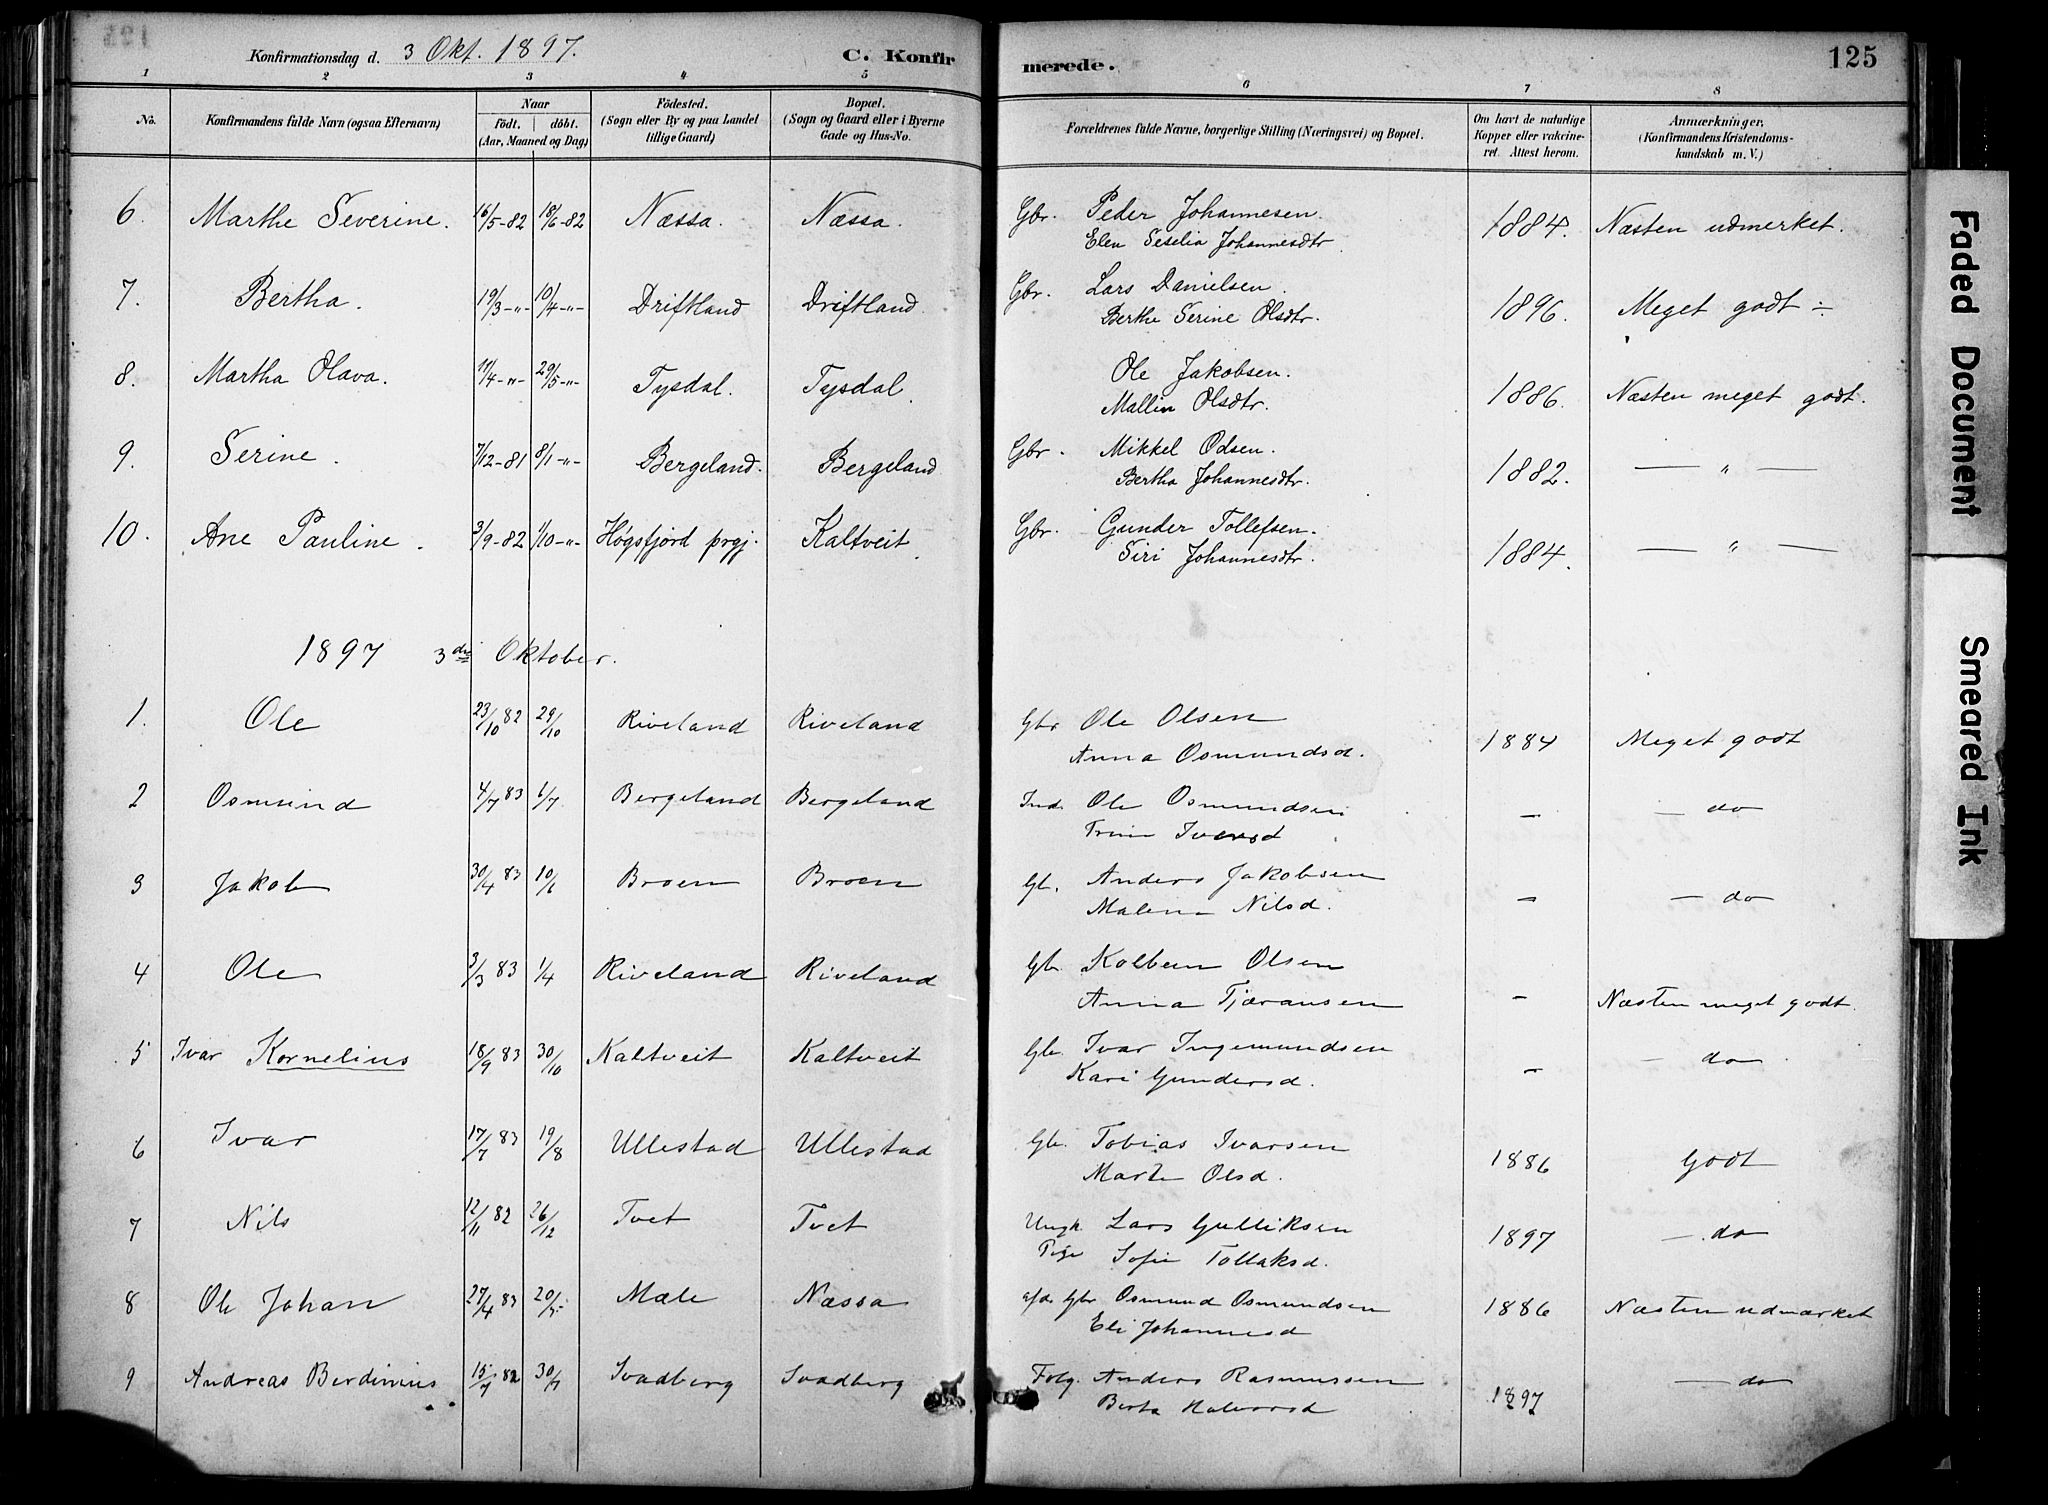 Konfirmationsdag d. 3 Okt. 1897.
C. Konfirmerede.
125
1 2 3 4 5 6 7 8
No.
Konfirmandens fulde Navn (ogsaa Efternavn)
Naar
födt. döbt.
(Aar, Maaned og Dag)
Födested.
(Sogn eller By og paa Landet
tillige Gaard)
Bopæl.
(Sogn og Gaard eller i Byerne
Gade og Hus-No.
Forældrenes fulde Navne, borgerlige Stilling (Næringsvei) og Bopæl.
Om havt de naturlige
Kopper eller vakcine-
ret. Attest herom.
Anmærkninger,
(Konfirmandens Kristendoms-
kundskab m. V.)
6. Marthe Severine. 16/5-82 18/6-82 Næssa. Næssa. Gbr. Peder Johannesen. 1884. Næsten udmerket.
Elen Seselia Johannesdtr
7. Bertha. 19/3-"- 10/4-"- Driftland Driftland. Gbr. Lars Danielsen. 1896. Meget godt ÷
Berthe Serine Olsdtr.
8. Martha Olava. 11/4-"- 29/5-"- Tysdal. Tysdal. Ole Jakobsen. 1886. Næsten meget godt.
Mallin Olsdtr.
9. Serine. 7/12-81 8/1-"- Bergeland. Bergeland Gbr. Mikkel Odsen. 1882. — " —
Bertha Johannesdtr.
10. Ane Pauline. 3/9-82 1/10-"- Høgsfjord prgj. Kaltveit. Gbr. Gunder Tollefsen. 1884. — " —
Siri Johannesdtr.
1897 3die Oktober.
1. Ole 23/10 82 29/10 Riveland Riveland Gbr Ole Olsen 1884 Meget godt
Anna Osmundsd.
2 Osmund 4/7 83 6/7 Bergeland Bergeland Ind. Ole Osmundsen — — do
Trine Iversd
3 Jakob 30/4 83 10/6 Broen Broen Gb. Anders Jakobsen — — do
Malena Nilsd.
4 Ole 3/3 83 1/4 Riveland Riveland Gb. Kolben Olsen
Anna Tjæransen — Næsten meget godt.
5 Ivar Kornelius 18/9 83 30/10 Kaltveit Kaltveit Gb. Ivar Ingemundsen — — do
Kari Gundersd.
6 Ivar 17/7 83 19/8 Ullestad Ullestad Gb. Tobias Ivarsen 1886 Godt
Marte Olsd.
7 Nils 12/11 82 26/12 Tvet Tvet Ungk. Lars Gulliksen 1897 — do
Pige Sofie Tollaksd.
8 Ole Johan 27/4 83 20/5 Mæle Næssa afd. Gbr Osmund Osmundsen 1886 Næsten udmærket
Eli Johannesd
9 Andreas Berdinius 15/7 82 30/7 Svadberg Svadberg Folg. Anders Rasmussen 1897 — do
Berta Halvorsd
Faded Document
Smeared Ink